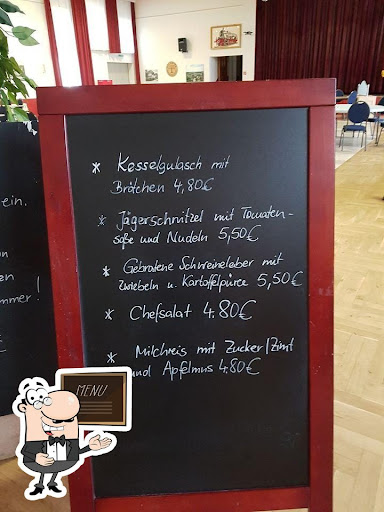 ein.
en
mmer!
* Kesselgulasch mit
Brötchen 4,80€
* Jägerschnitzel mit Tomaten-
soße und Nudeln 5,50€
* Gebratene Schweineleber mit
Zwiebeln u. Kartoffelpüree 5,50€
* Chefsalat 4.80€
* Milchreis mit Zucker/Zimt
und Apfelmus 4.80€
MENU